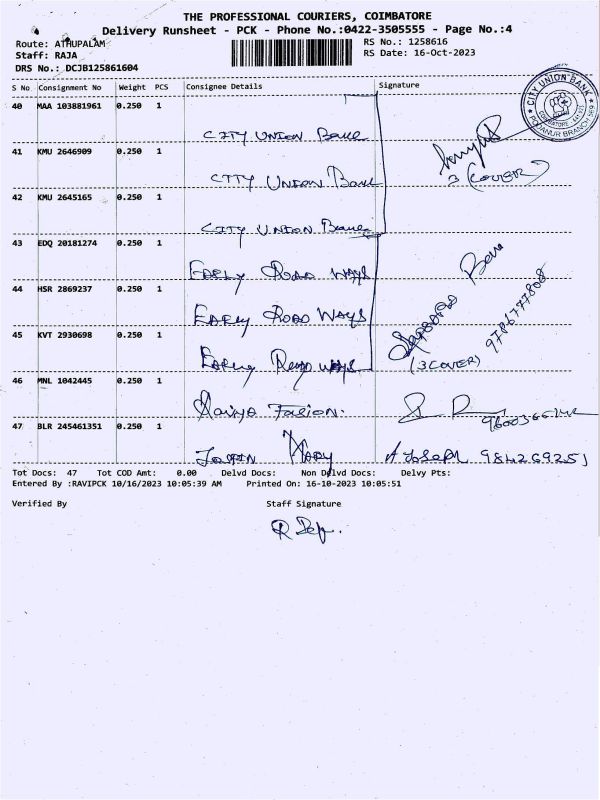 THE PROFESSIONAL COURIERS, COIMBATORE
Delivery Runsheet - PCK - Phone No.:0422-3505555 - Page No.:4
Route: ATHUPALAM
RS No.: 1258616
Staff: RAJA
RS Date: 16-Oct-2023
DRS No.: DCJB125861604
S No Consignment No Weight PCS Consignee Details Signature
40 MAA 103881961 0.250 1
CITY UNION Bank
CITY UNION BANK
COIMBATORE - 641 023
PODANUR BRANCH 569
41 KMU 2646909 0.250 1
CITY UNION Bank
3 (COVER)
42 KMU 2645165 0.250 1
CITY UNION Bank
43 EDQ 20181274 0.250 1
EARLY ROAD WAYS
44 HSR 2869237 0.250 1
EARLY ROAD WAYS
9786777808
45 KVT 2930698 0.250 1
EARLY ROAD WAYS
(3 COVER)
46 MNL 1042445 0.250 1
47 BLR 245461351 0.250 1
MARY A JOSEPH 984269251
Tot Docs: 47 Tot COD Amt: 0.00 Delvd Docs: Non Delvd Docs: Delvy Pts:
Entered By :RAVIPCK 10/16/2023 10:05:39 AM Printed On: 16-10-2023 10:05:51
Verified By Staff Signature